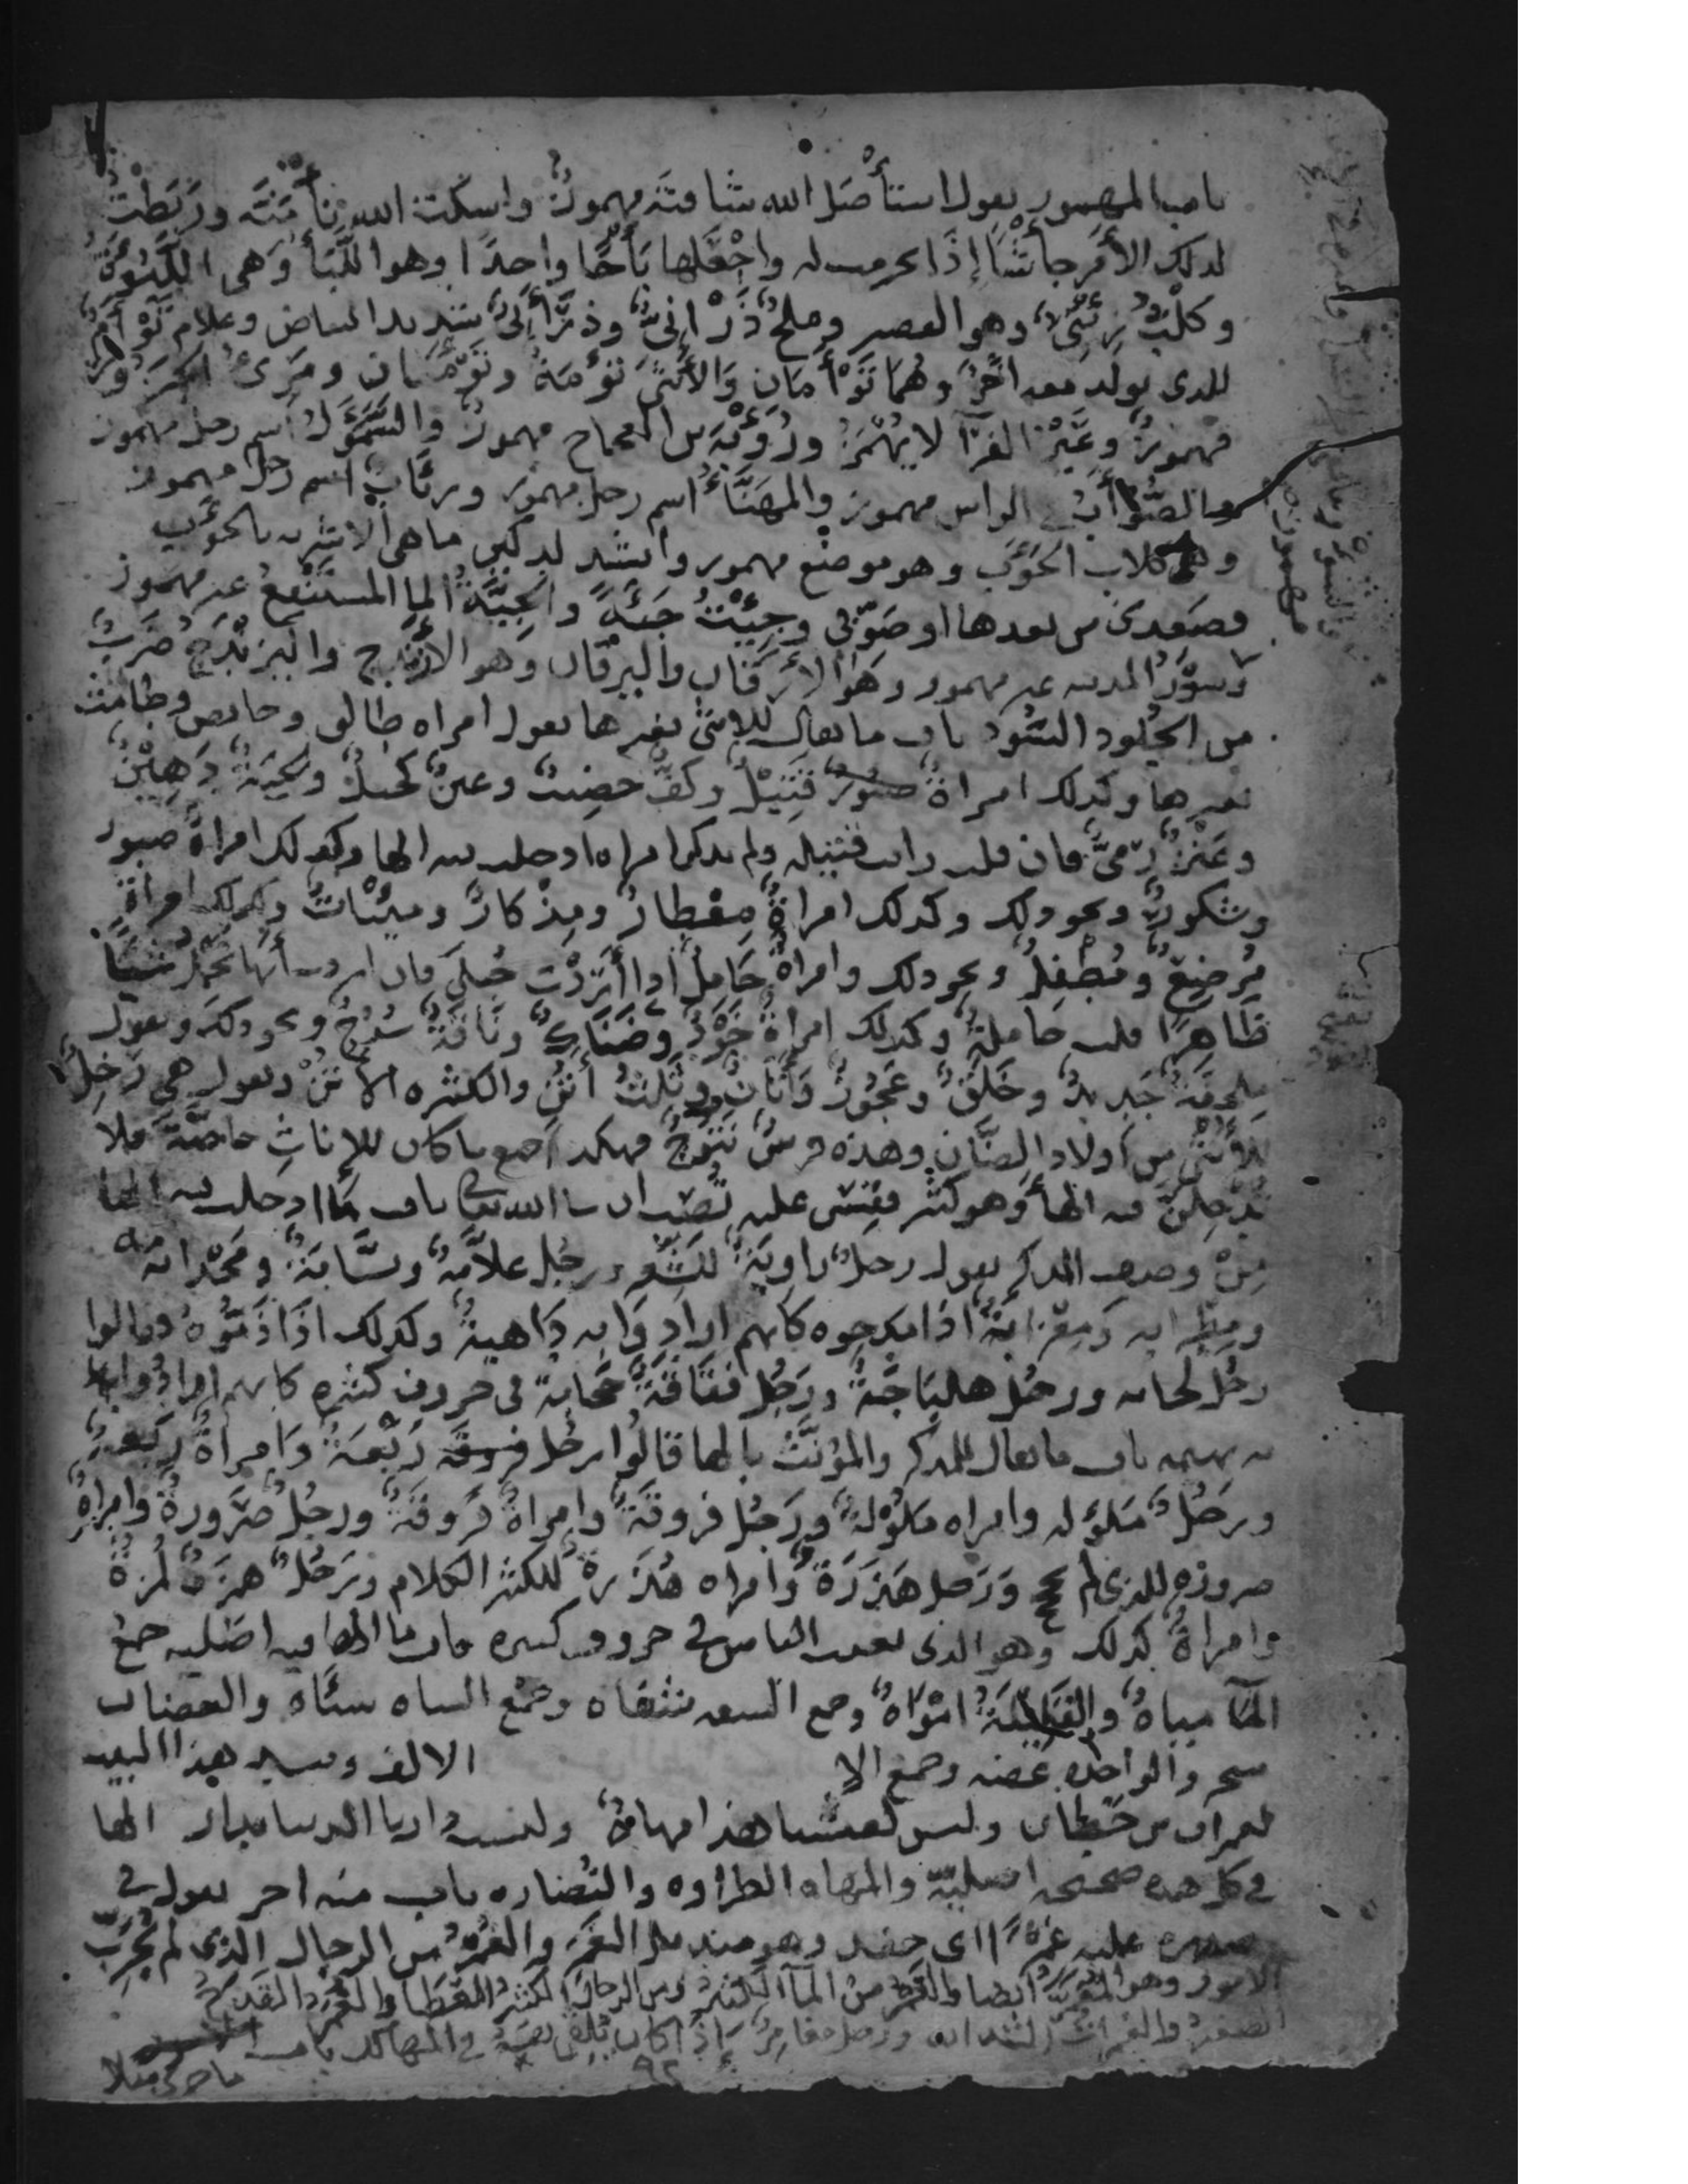 باب المهموز يقول استأصل الله شأفته مهموز واسكت الله نأمته وربطت
لذلك الأمر جأشا إذا تحرمت له واجعلها بأجا واحدا وهو اللبأ وهي اللبؤة
وكلب زئني وهو القصير وملح ذرْآني وذرَأني شديد البياض وغلام توأم
للذي يولد معه اخر وهما توأمان والأنثى توءمة وتوءمتان ومرئ الجزور
مهموز وغير الفرآ لا يهمز ورؤبة بن العجاج مهموز والسموأل اسم رجل مهموز
والصؤاب في الراس مهموز والمهنأ اسم رجل مهموز ورئاب اسم رجل مهموز
وهي كلاب الحوءب وهو موضع مهموز وانشد لدكين ما هي الا شربة بالحوءب
فصعدي من بعدها او صوبي وجئت جيئة والجية الما المستنقع غير مهموز
وسور المدينه غير مهموز وهو الأرقان واليرقان وهو الأرندج واليرندج ضرب
من الجلود السود باب ما يقال للانثى بغير ها يقول امراه طالق وحائض وطامث
بغير ها وكذلك امراة قتيل وكف خضيب وعين كحيل ولحية دهين
وعنز رمي فان قلت رايت قتيله ولم تذكر امراه ادخلت فيه الها وكذلك امراة صبور
وشكور ونحو ذلك وكذلك امراة معطار ومذكار ومئناث وكذلك امرأة
مرضع ومطفل ونحو ذلك وامراة حامل اذا أردت حبلى فان اردت أنها تحمل شيئا
ظاهرا قلت حاملة وكذلك امراة خود وضناك وناقة سرح ونحو ذلك ويقول
ملحفة جديد وخلق وعجوز وأتان وثلث أتن والكثيره الأتن ويقول هي رخل
للأنثى من اولاد الضان وهذه فرس نتوج فهكذا جميع ما كان للإناث خاصة فلا
تدخلن فيه الهأ وهو كثير فقس عليه تصب ان شا الله تعالى باب ما ادخلت فيه الها
من وصف المذكر يقول رجل راوية للشعر ورجل علامة ونسابة ومجذامه
ومطرابه ومعزابة اذا مدحوه كانهم ارادوا به داهية وكذلك اذا ذموه وقالوا
رجل لحانه ورجل هلباجة ورجل فقاقة جخابة في حروف كثيره كانهم ارادوا به
به بهيمه باب ما يقال للمذكر والمؤنث بالها قالوا رجل ربعة وامرأة ربعة
ورجل ملوله وامراه ملولة ورجل فروقة وامراة فروقة ورجل صرورة وامراة
صروره للذي لم يحج ورجل هذرة وامراه هذرة للكثير الكلام ورجل همزة لمزة
وامراة كذلك وهو الذي يعيب الناس في حروف كثيره باب ما الها فيه اصليه جمع
المآ مياه والقليلة امواه وجمع الشفه شفاه وجمع الشاه شاه والعضاه
شجر والواحده عضه وجمع الا الالف وينشد هذا البيت
لعمران بن حطان وليس لعيشنا هذا مهاه وليست دارنا الدنيا بدار الها
في كل هذه صحيحه اصليه والمهاه الطراوه والنضاره باب منه اخر يقول في
صدره عليه غمر اي حقد وهو منديل الغمر والغمر من الرجال الذي لم يجرب
الامور وهو المغمر ايضا والغمر من المآ الكثير ومن الرجال الكثير العطا والغمر القدح
الصغير والغمرات الشدائد ورجل مغامر إذا كان يلقي نفسه في المهالك باب
ما جرى مثلا
٩٢